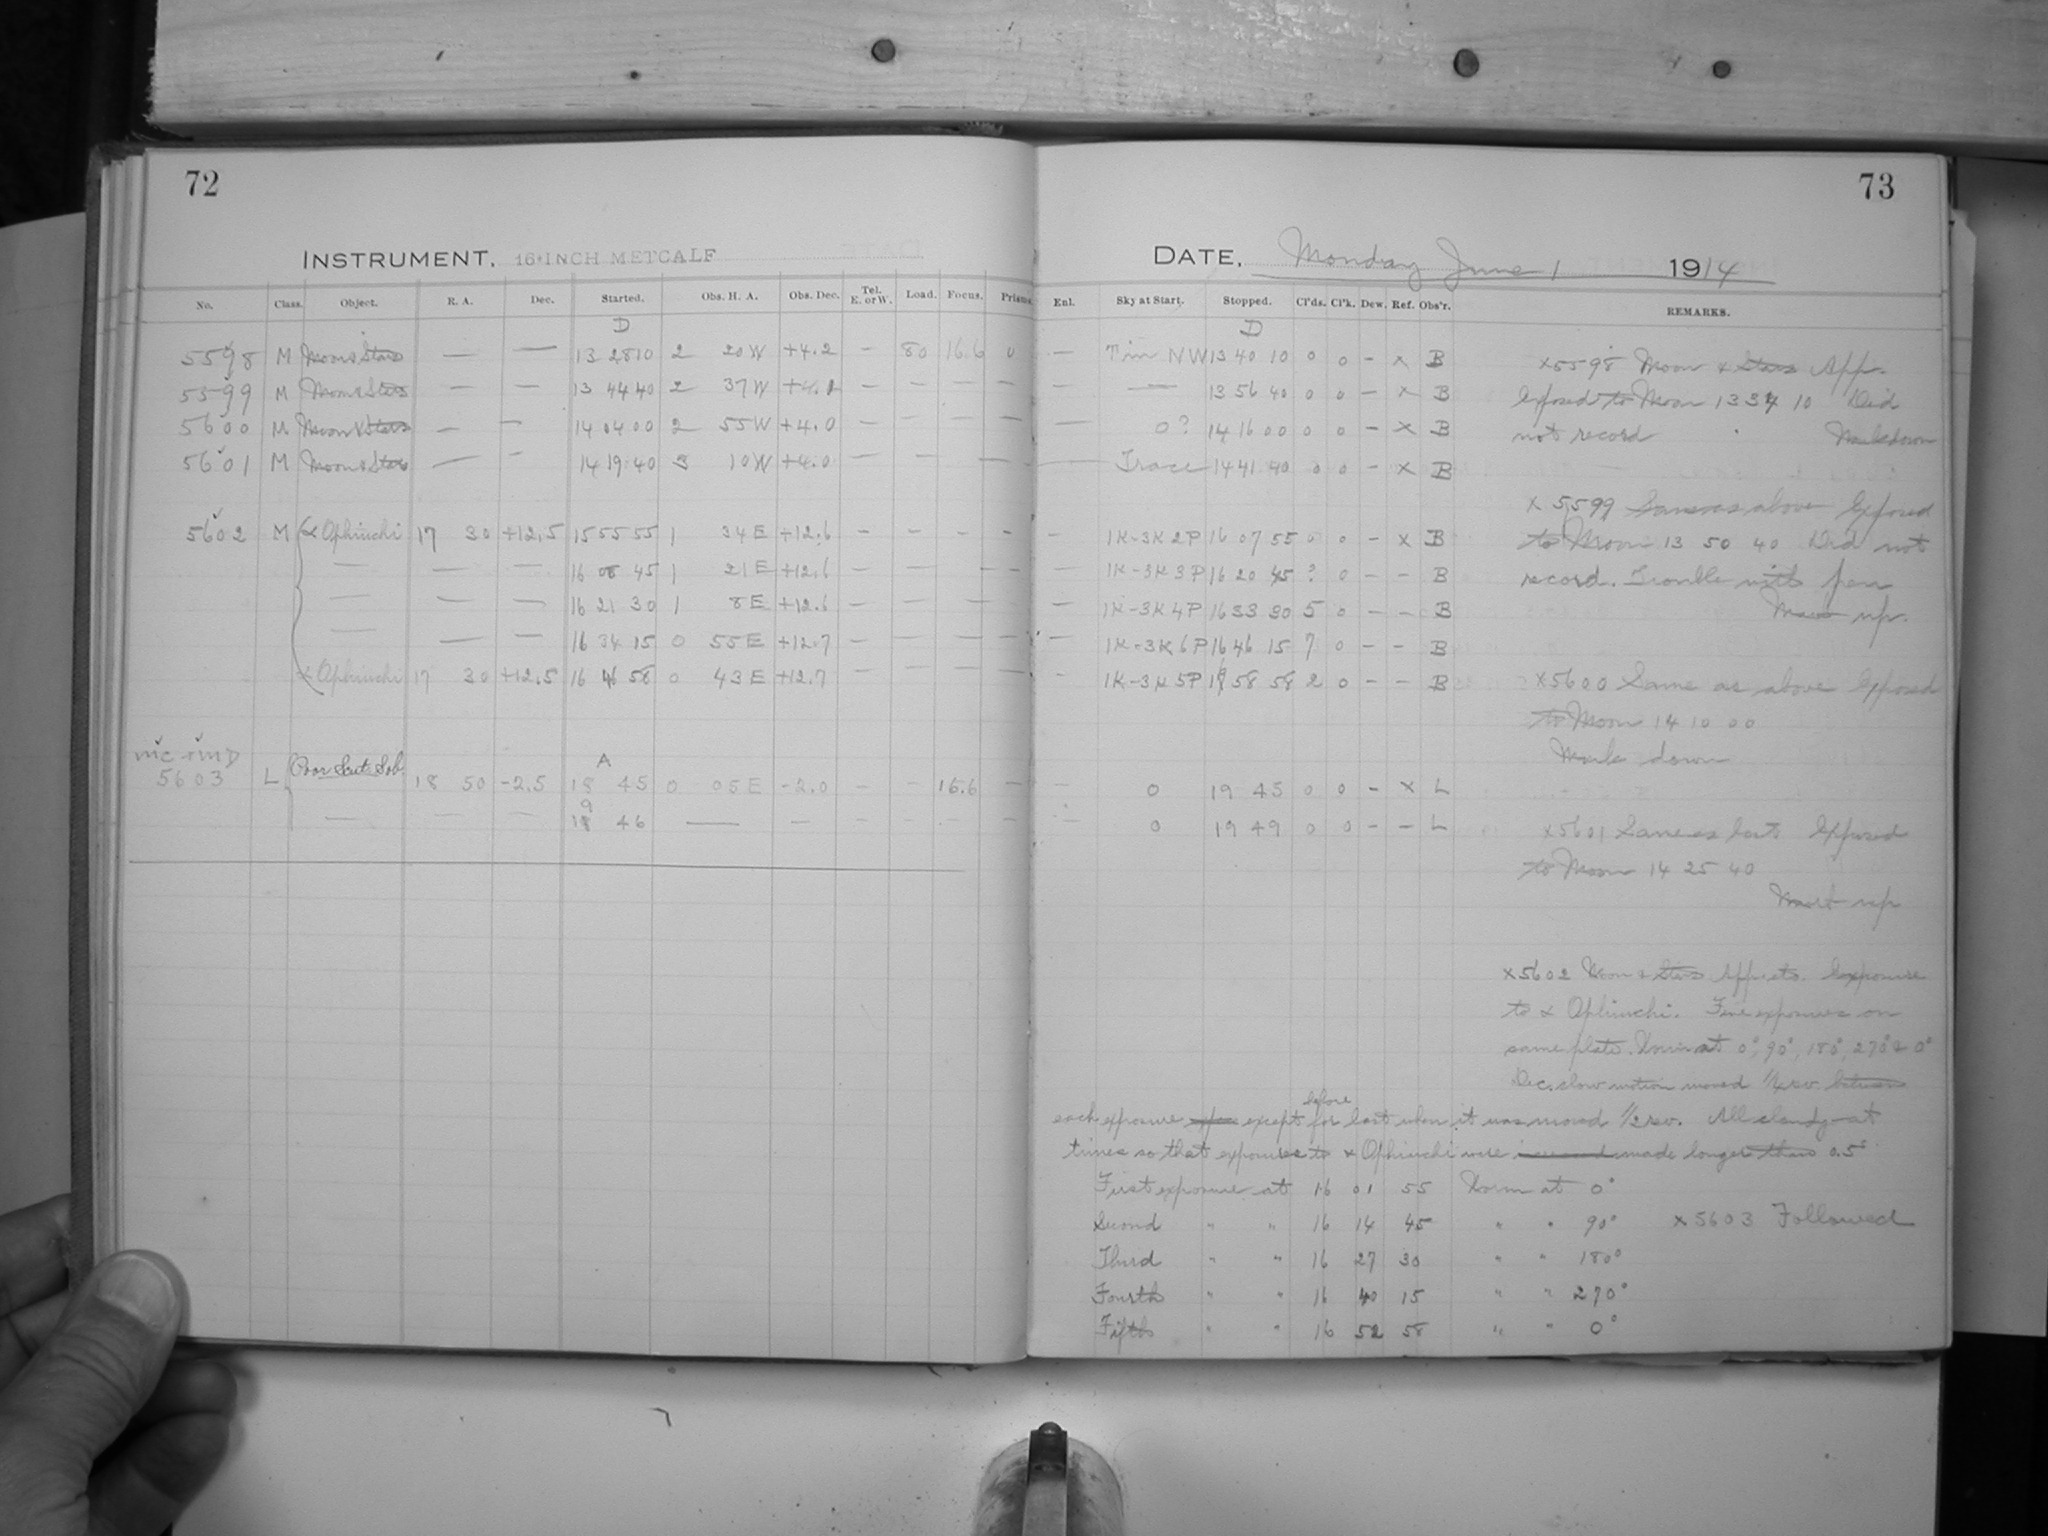 72
INSTRUMENT. 16-INCH METCALF
No. Class. Object. R. A. Dec. Started. Obs. H. A. Obs. Dec. Tel. E. or W. Load. Focus. Prisms
D
5598 M Moon & Stars — — 13 28 10 2 20 W +4.2 — 80 16.6 0
5599 M Moon & Stars — — 13 44 40 2 37 W — — — —
5600 M Moon & Stars — — 14 04 00 2 55 W +4.0 — — — —
5601 M Moon & Stars — — 14 19 40 3 10 W +4.0 — — — —
5602 M α Ophiuchi 17 30 +12.5 15 55 55 1 34 E +12.6 — — — —
— — — 16 08 45 1 21 E +12.6 — — — —
— — — 16 21 30 1 8 E +12.6 — — — —
— — — 16 34 15 0 55 E +12.7 — — — —
α Ophiuchi 17 30 +12.5 16 46 58 0 43 E +12.7 — — — —
A
5603 L 18 50 -2.5 18 45 0 05 E -2.0 — — 16.6 —
— — — 19 46 — — — — — —
73
DATE. Monday June 1 1914
Enl. Sky at Start. Stopped. Cl'ds. Cl'k. Dew. Ref. Obs'r. REMARKS.
D
— NW 13 40 10 0 0 – x B
— — 13 56 40 0 0 – x B
0? 14 16 00 0 0 – x B
— Trace 14 41 40 0 0 – x B
— 1K-3K 2P 16 07 55 0 0 – x B
— 1K-3K 3P 16 20 45 ? 0 – – B
— 1K-3K 4P 16 33 30 5 0 – – B
— 1K-3K 6P 16 46 15 7 0 – – B
— 1K-3K 5P 58 58 2 0 – – B
— 0 19 45 0 0 – x L
— 0 19 49 0 0 – – L
x5598 Moon & Stars App.
Exposed to Moon 13 34 10 Did
not record Mark down
x 5599 Same as above Exposed
to Moon 13 50 40 Did not
record. Trouble with pen
Mark up.
x5600 Same as above Exposed
to Moon 14 10 00
Mark down
x5601 Same as last Exposed
to Moon 14 25 40
Mark up
x5602 Moon & Stars App. etc. Exposure
to α Ophiuchi. Five exposures on
same plate. at 0°, 90°, 180°, 270° & 0°
Dec. slow motion moved rev. between
each exposure except before for last when it was moved 1/2 rev. All cloudy at
times so that exposures to α Ophiuchi were made longer than 0.5
First exposure at 16 01 55 at 0°
Second " " 16 14 45 " " 90° x5603 Followed
Third " " 16 27 30 " " 180°
Fourth " " 16 40 15 " " 270°
Fifth " " 16 52 58 " " 0°